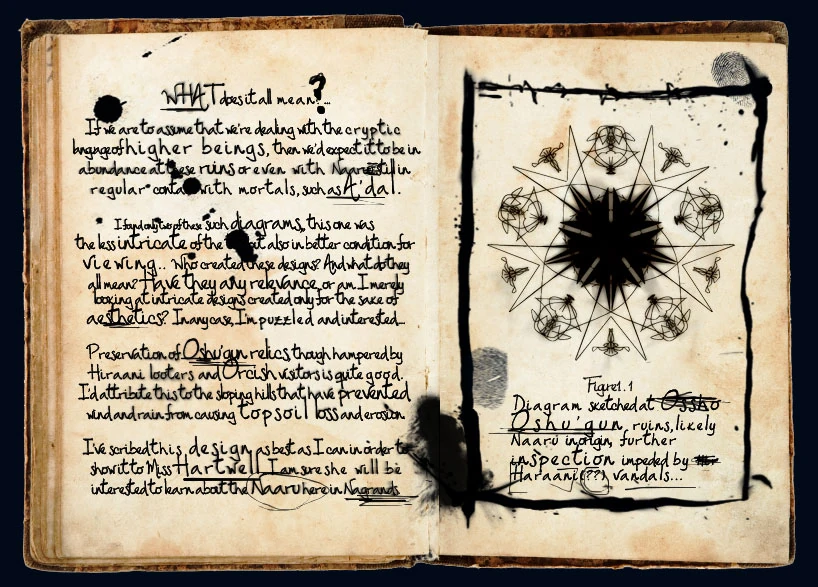 WHAT does it all mean?...
If we are to assume that we're dealing with the cryptic
language of higher beings, then we'd expect it to be in
abundance at these ruins or even with Naaru still in
regular contact with mortals, such as A'dal.
I found only two of these such diagrams, this one was
the less intricate of the but also in better condition for
viewing.. Who created these designs? And what do they
all mean? Have they any relevance or am I merely
looking at intricate designs created only for the sake of
aesthetics? In any case, I'm puzzled and interested...
Preservation of Oshu'gun relics though hampered by
Hiraani looters and Orcish visitors is quite good.
I'd attribute this to the sloping hills that have prevented
wind and rain from causing topsoil loss and erosion
I've scribed this design as best as I can in order to
show it to Miss Hartwell I am sure she will be
interested to learn about the Naaru here in Nagrand.
Figure1.1
Diagram sketched at Ossho
Oshu'gun ruins, likely
Naaru in origin, further
inspection impeded by
Haraani(??) vandals...